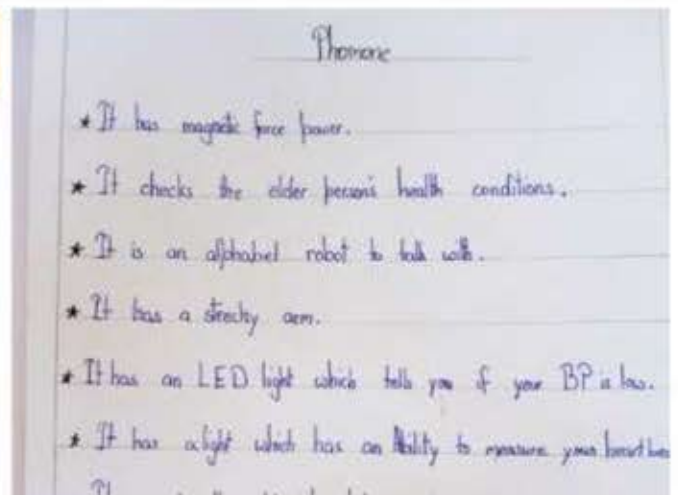 Phomone
★ It has magnetic force power.
★ It checks the older person's health conditions.
★ It is an alphabet robot to talk with.
★ It has a strechy arm.
★ It has an LED light which tells you if your BP is low.
★ It has a light which has an Ability to measure your
It